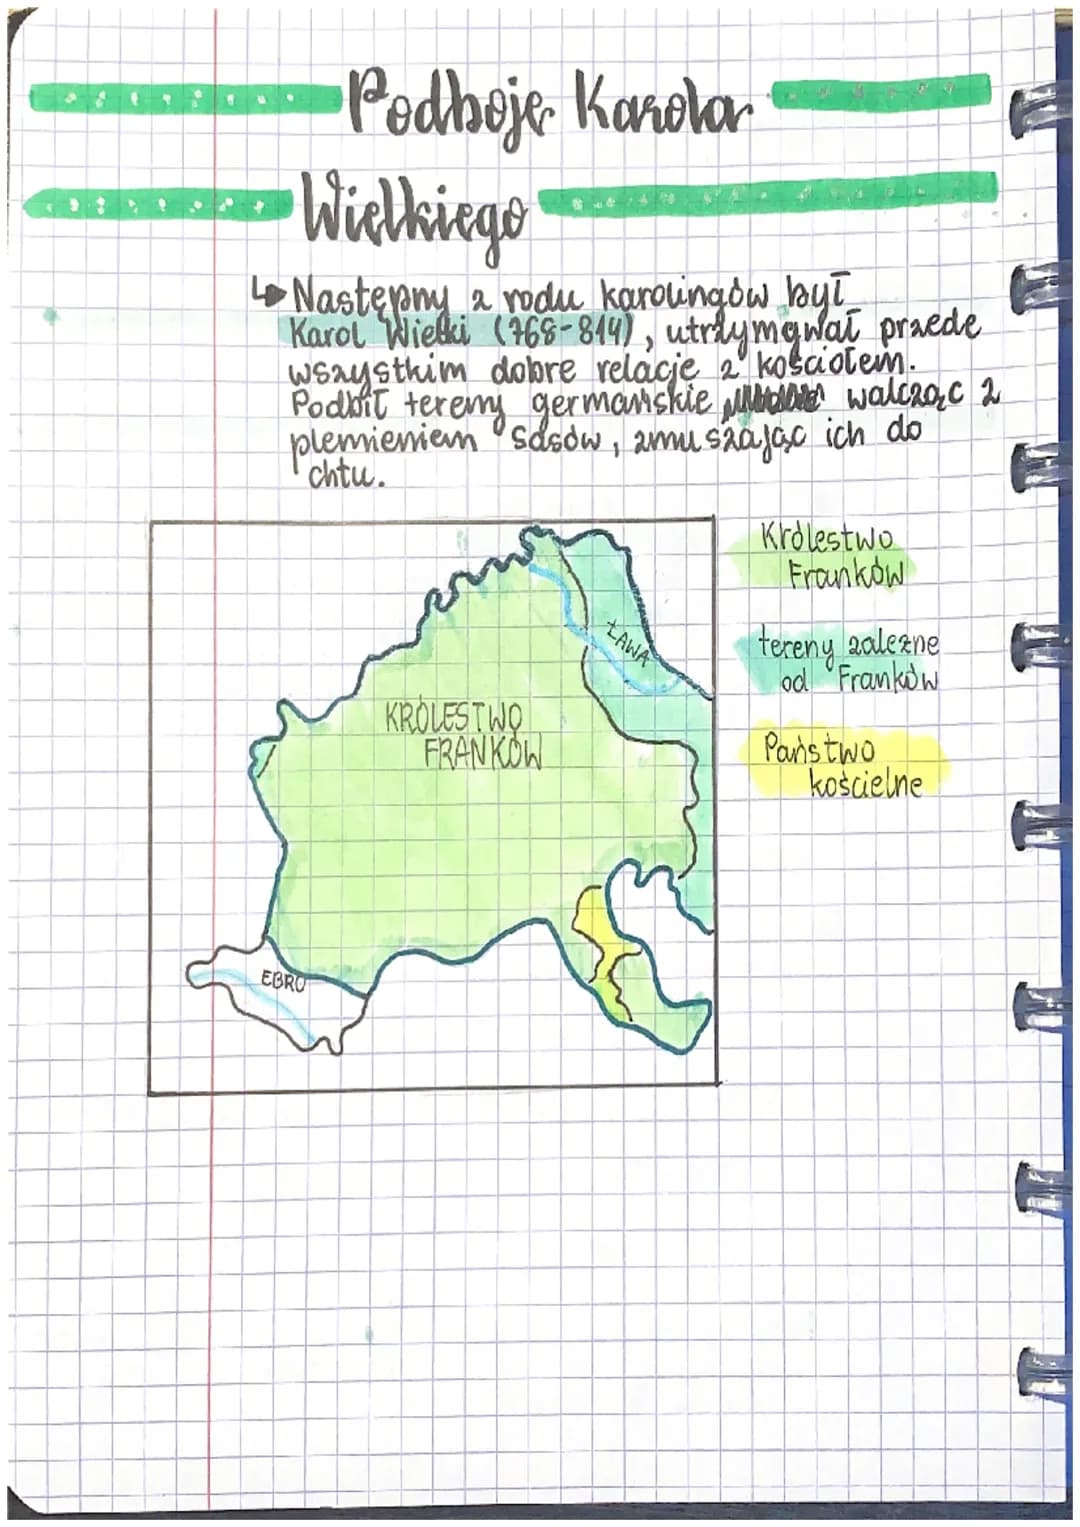 Podboje Karola
Wielkiego
↳ Następny z rodu karolingów był
Karol Wielki (768-814), utrzymywał przede
wszystkim dobre relacje z kościołem.
Podbił tereny germańskie walcząc z
plemieniem Sasów, zmuszając ich do
chtu.
Królestwo
Franków
tereny zależne
od Franków
Państwo
kościelne
ŁAWA
KRÓLESTWO
FRANKÓW
EBRO